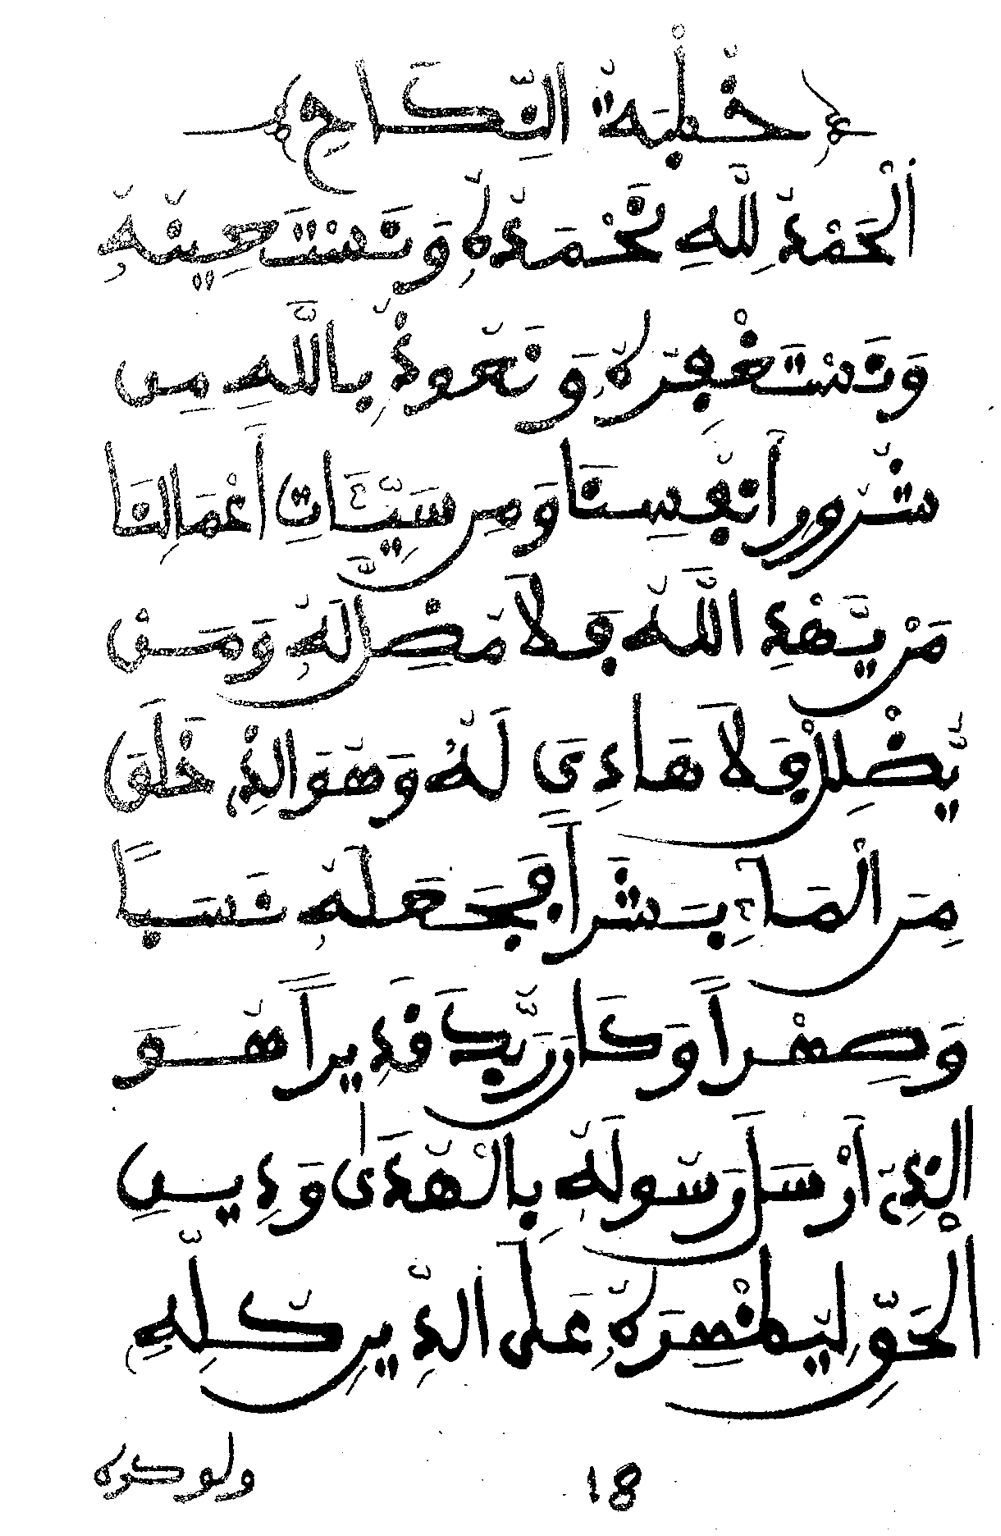 خُطْبَةُ النِّكَاحِ
اَلْحَمْدُ لِلَّهِ نَحْمَدُهُ وَنَسْتَعِينُهُ
وَنَسْتَغْفِرُهُ وَنَعُوذُ بِاللَّهِ مِن
شُرُورِ أَنفُسِنَا وَمِن سَيِّئَاتِ أَعْمَالِنَا
مَنْ يَّهْدِ اللَّهُ فَلَا مُضِلَّ لَهُ وَمَن
يُّضْلِلْ فَلَا هَادِيَ لَهُ وَهُوَ الذِي خَلَقَ
مِنَ الْمَاءِ بَشَراً فَجَعَلَهُ نَسَباً
وَصِهْراً وَكَانَ رَبُّكَ قَدِيراً هُوَ
الذِي أَرْسَلَ رَسُولَهُ بِالْهُدَىٰ وَدِينِ
الْحَقِّ لِيُظْهِرَهُ عَلَى الدِّينِ كُلِّهِ
ولو كره
18